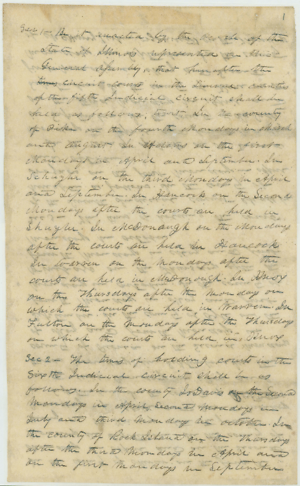 1
Sec 1. Be it enacted by the People of the
State of Illinois represented in the
General Assembly that hereafter the
circuit courts in the several counties
of the fifth Judicial Circuit shall be
held as follows, to wit. In the county
of on the fourth Mondays in March
and August. In on the first
Mondays in April and September. In
Schuyler on the third Mondays in April
and September. In Hancock on the Second
Mondays after the courts are held in
Schuyler. In McDonough on the Mondays
after the courts are held in Hancock
In Warren on the Mondays after the
courts are held in McDonough. In Henry
on the Thursdays after the Monday on
which the courts are held in Warren. In
Fulton on the Mondays after the Thursdays
on which the courts are held in Henry
Sec 2. The times of holding courts in the
Sixth Judicial Circuit shall be as
follows. In the county Jo Daviess on the second
Mondays in April, second Mondays in
July and third Monday in October. In
the county of Rock Island on the Thursdays
after the third Mondays in April and
on the first Mondays in September